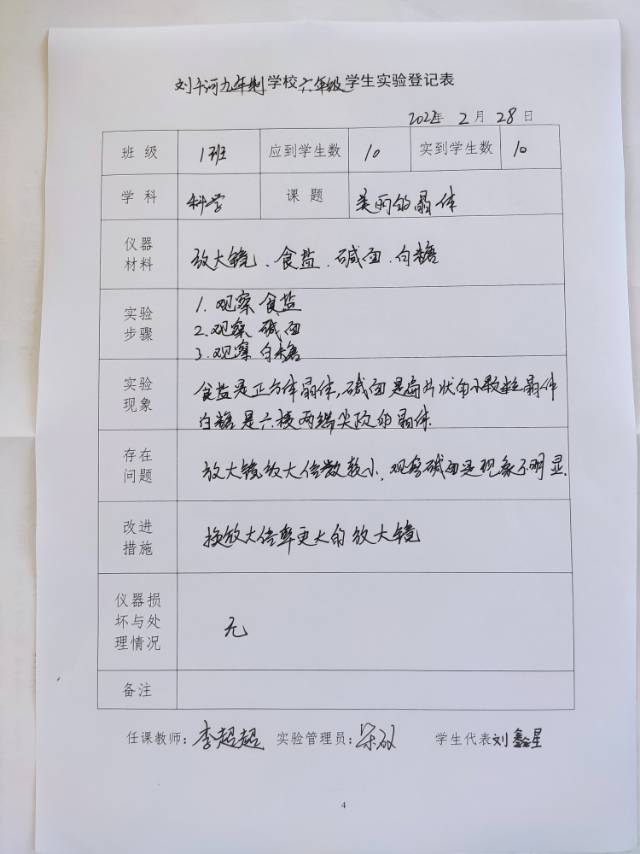 刘千河九年制学校六年级学生实验登记表
2022年 2 月 28 日
班 级 1班 应到学生数 10 实到学生数 10
学 科 科学 课 题 美丽的晶体
仪器材料 放大镜、食盐、碱面、白糖
实验步骤 1. 观察食盐
2. 观察 碱面
3. 观察 白糖
实验现象 食盐是正方体晶体,碱面是扁片状的小颗粒晶体
白糖是六棱两端尖顶的晶体.
存在问题 放大镜放大倍数较小,观察碱面是现象不明显.
改进措施 换放大倍率更大的放大镜
仪器损坏与处理情况 无
备注
任课教师:李超超 实验管理员: 学生代表刘鑫星
4